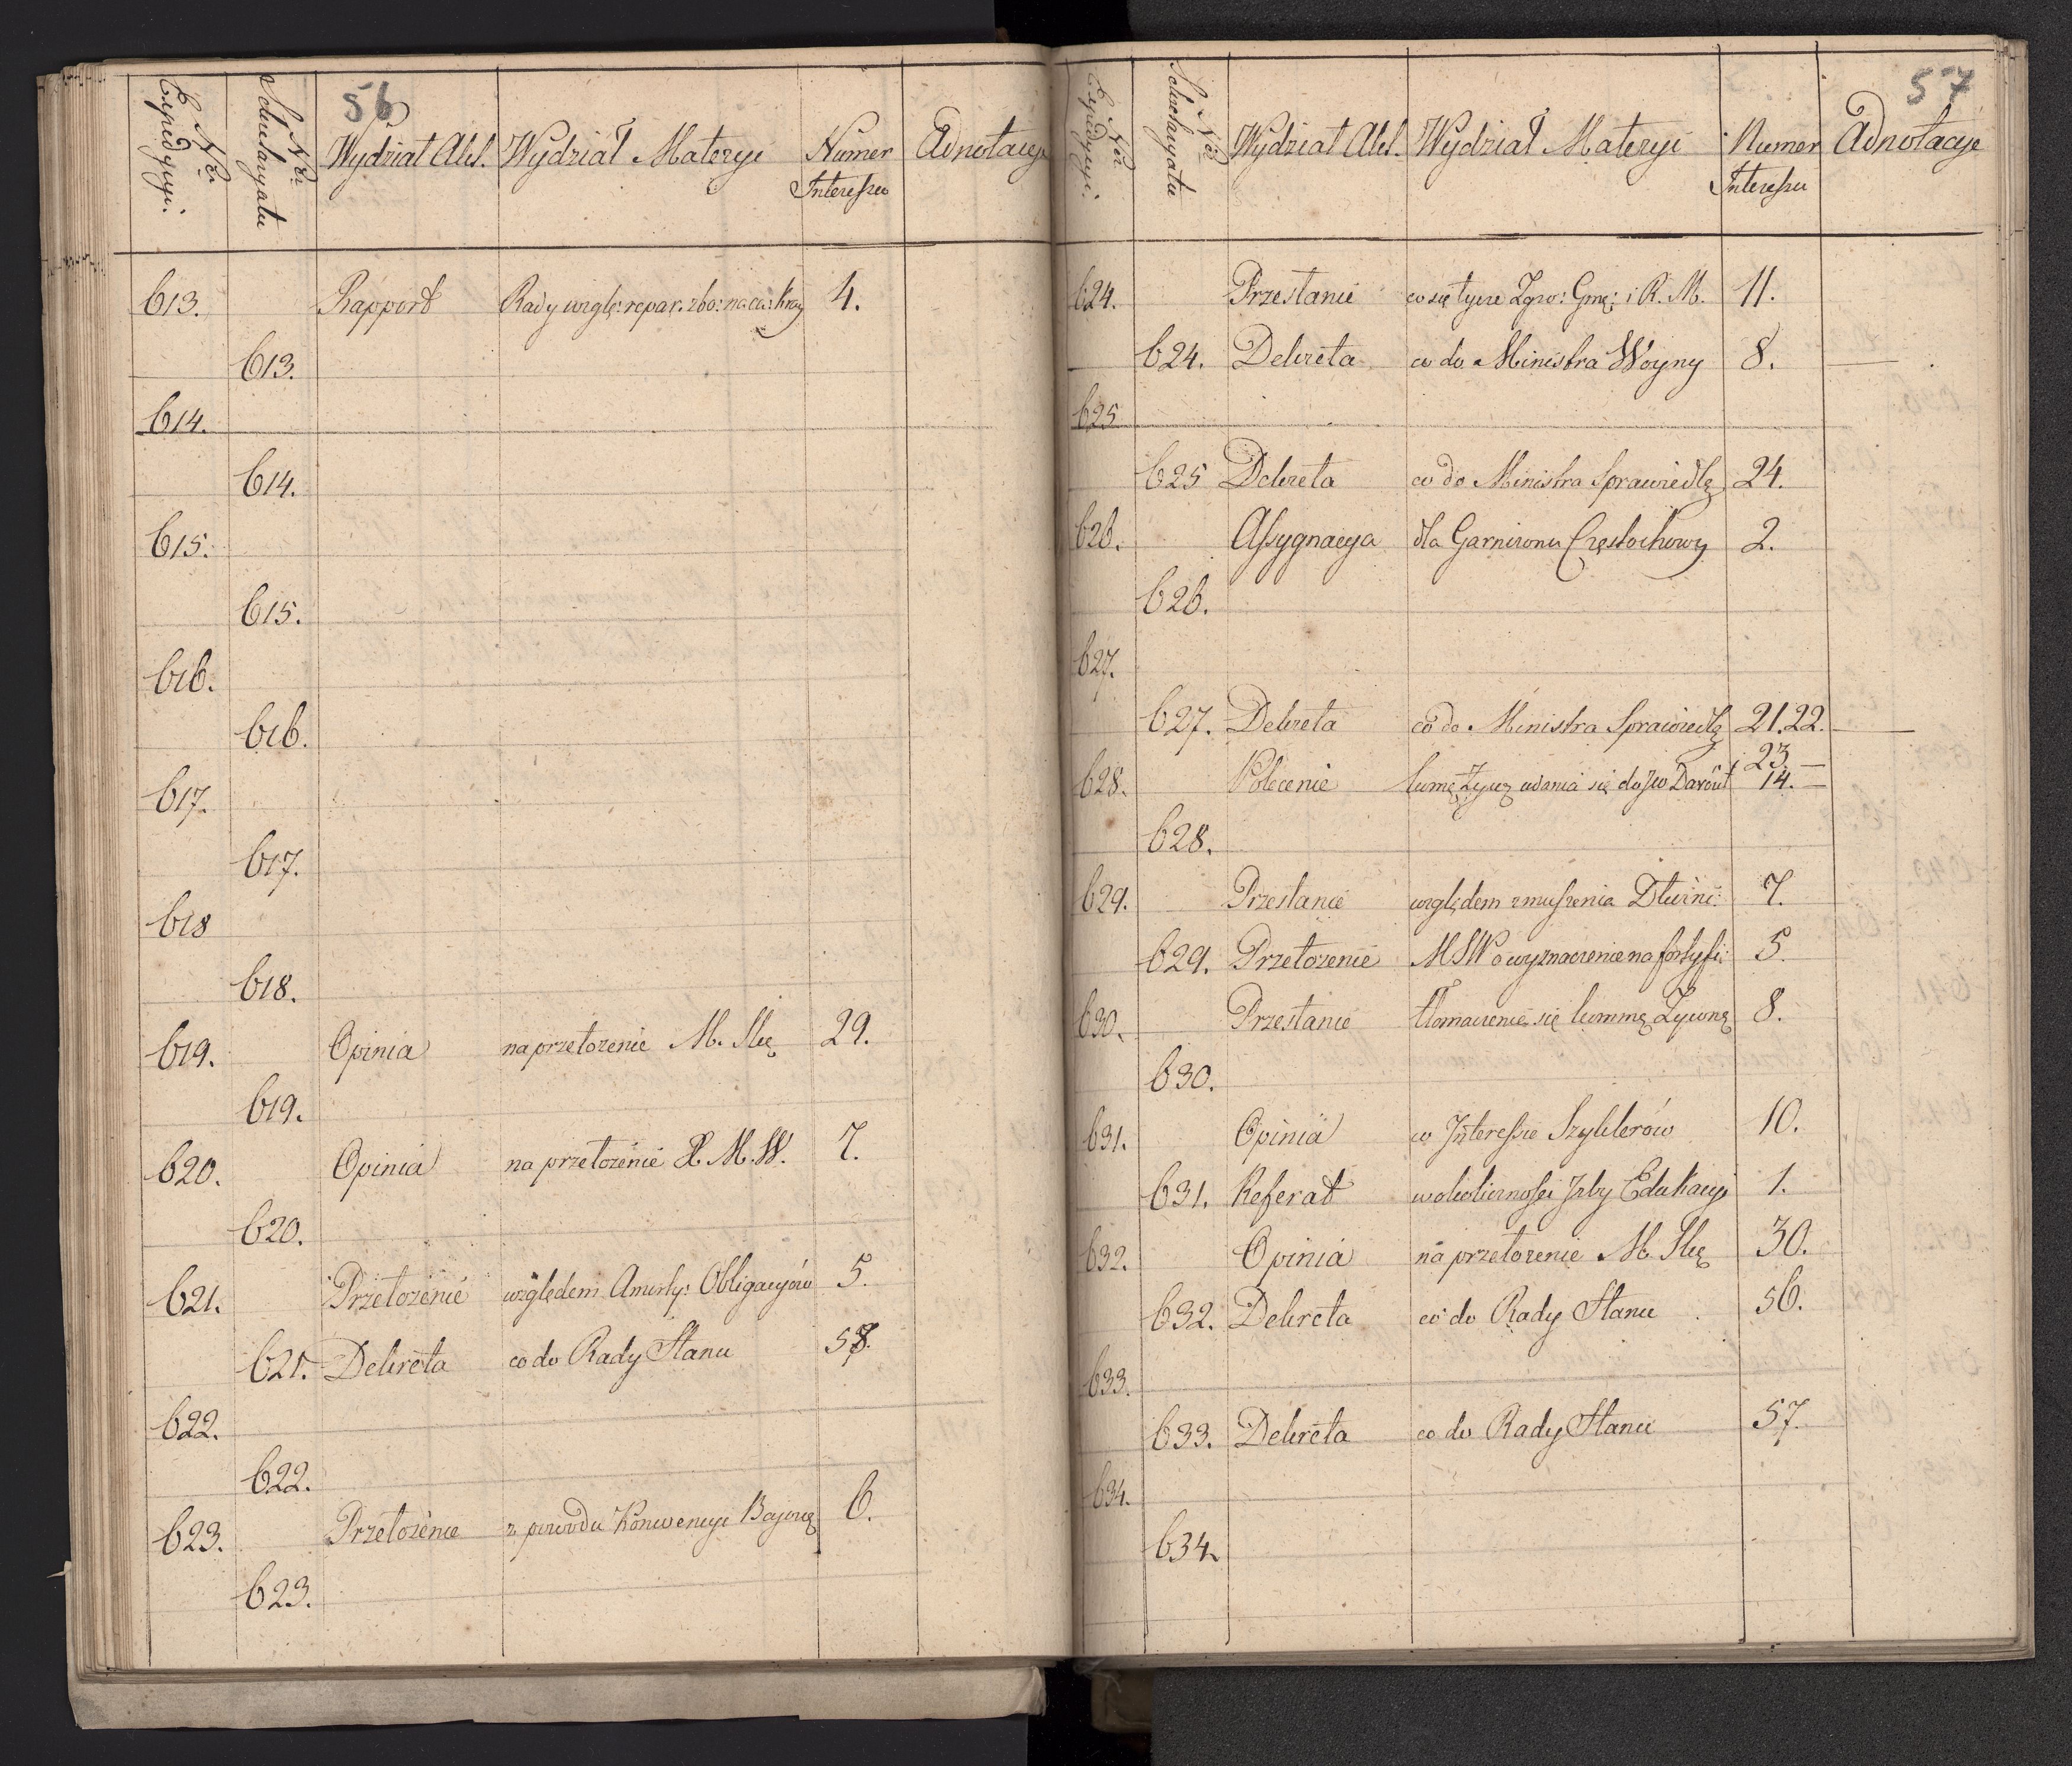 56
Nro Expedycyi.
Nro Schuchayatu
Wydział Akt.
Wydział Materyi
Numer Interessu
Adnotacye
613. Rapport Rady wzglę: repar. zbo: na cał: kray 4.
613.
614.
614.
615.
615.
616.
616.
617.
617.
618
618.
619. Opinia na przełożenie M. Skę 29.
619.
620. Opinia na przełożenie X. M. W. 7.
620.
621. Przełożenie względem Amorty: Obligacyów 5.
621. Dekreta co do Rady Stanu 58.
622.
622.
623. Przełożenie z powodu Konwencyi Bajoną 6.
623.
57
Nro Expedycyi.
Nro
Wydział Akt.
Wydział Materyi
Numer Interessu
Adnotacye
624. Przesłanie co się tycze Zgro: Gmę: i R. M. 11.
624. Dekreta co do Ministra Woyny 8.
625
625 Dekreta co do Ministra Sprawiedlę 24.
626. Assygnacya dla Garnizonu Częstochowy 2.
626.
627.
627. Dekreta co do Ministra Sprawiedlę 21. 22. 23.
628. Polecenie udania się do JW Davout 14.
628.
629. Przesłanie względem zmuszenia Dłużni: 7.
629. Przełożenie MSW o wyznaczenie na fortyfi: 5.
630. Przesłanie tłomaczenie się Summą Żywną 8.
630.
631. Opinia w Interessie Szyklerów 10.
631. Referat w okoliczności Izby Edukacyi 1.
632. Opinia na przełożenie M. Skę 30.
632. Dekreta co do Rady Stanu 56.
633.
633. Dekreta co do Rady Stanu 57.
634.
634.